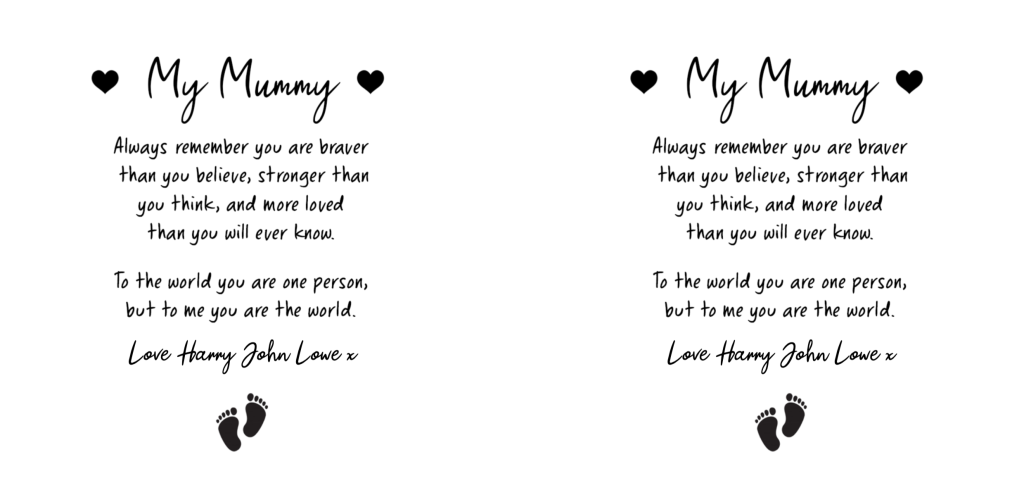 My Mummy
Always remember you are braver
than you believe, stronger than
you think, and more loved
than you will ever know.
To the world you are one person,
but to me you are the world.
Love Harry John Lowe x
My Mummy
Always remember you are braver
than you believe, stronger than
you think, and more loved
than you will ever know.
To the world you are one person,
but to me you are the world.
Love Harry John Lowe x